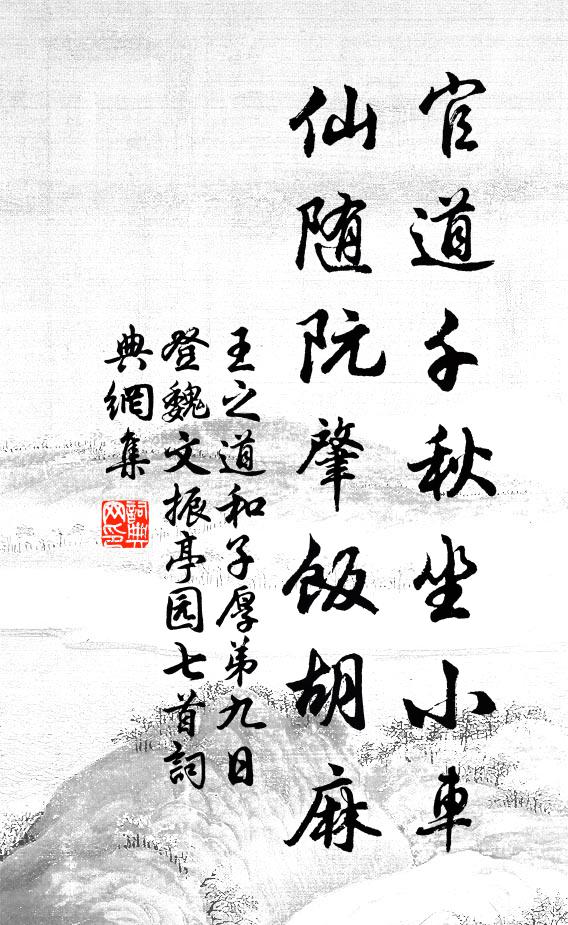 官道千秋坐小車
仙随阮肇飯胡麻
王之道和子厚第九日
登魏文振亭园七首詞
典網集
詞典
网印